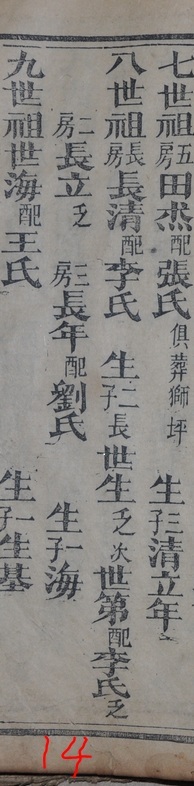 七世祖五房田杰配張氏俱葬獅坪 生三子清立年
八世祖長房長清配李氏 生二子長世生乏次世第配李氏乏
二房長立乏 三房長年配劉氏 生子一海
九世祖世海配王氏 生子一生基
14